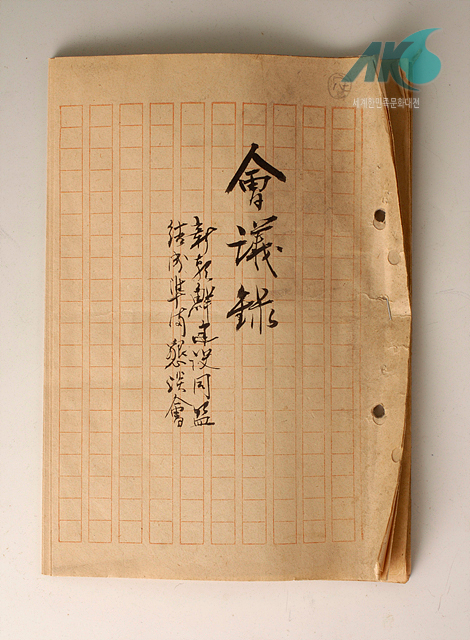 會議錄
新朝鮮建設同盟
結成準備懇談會
AKS
세계한민족문화대전